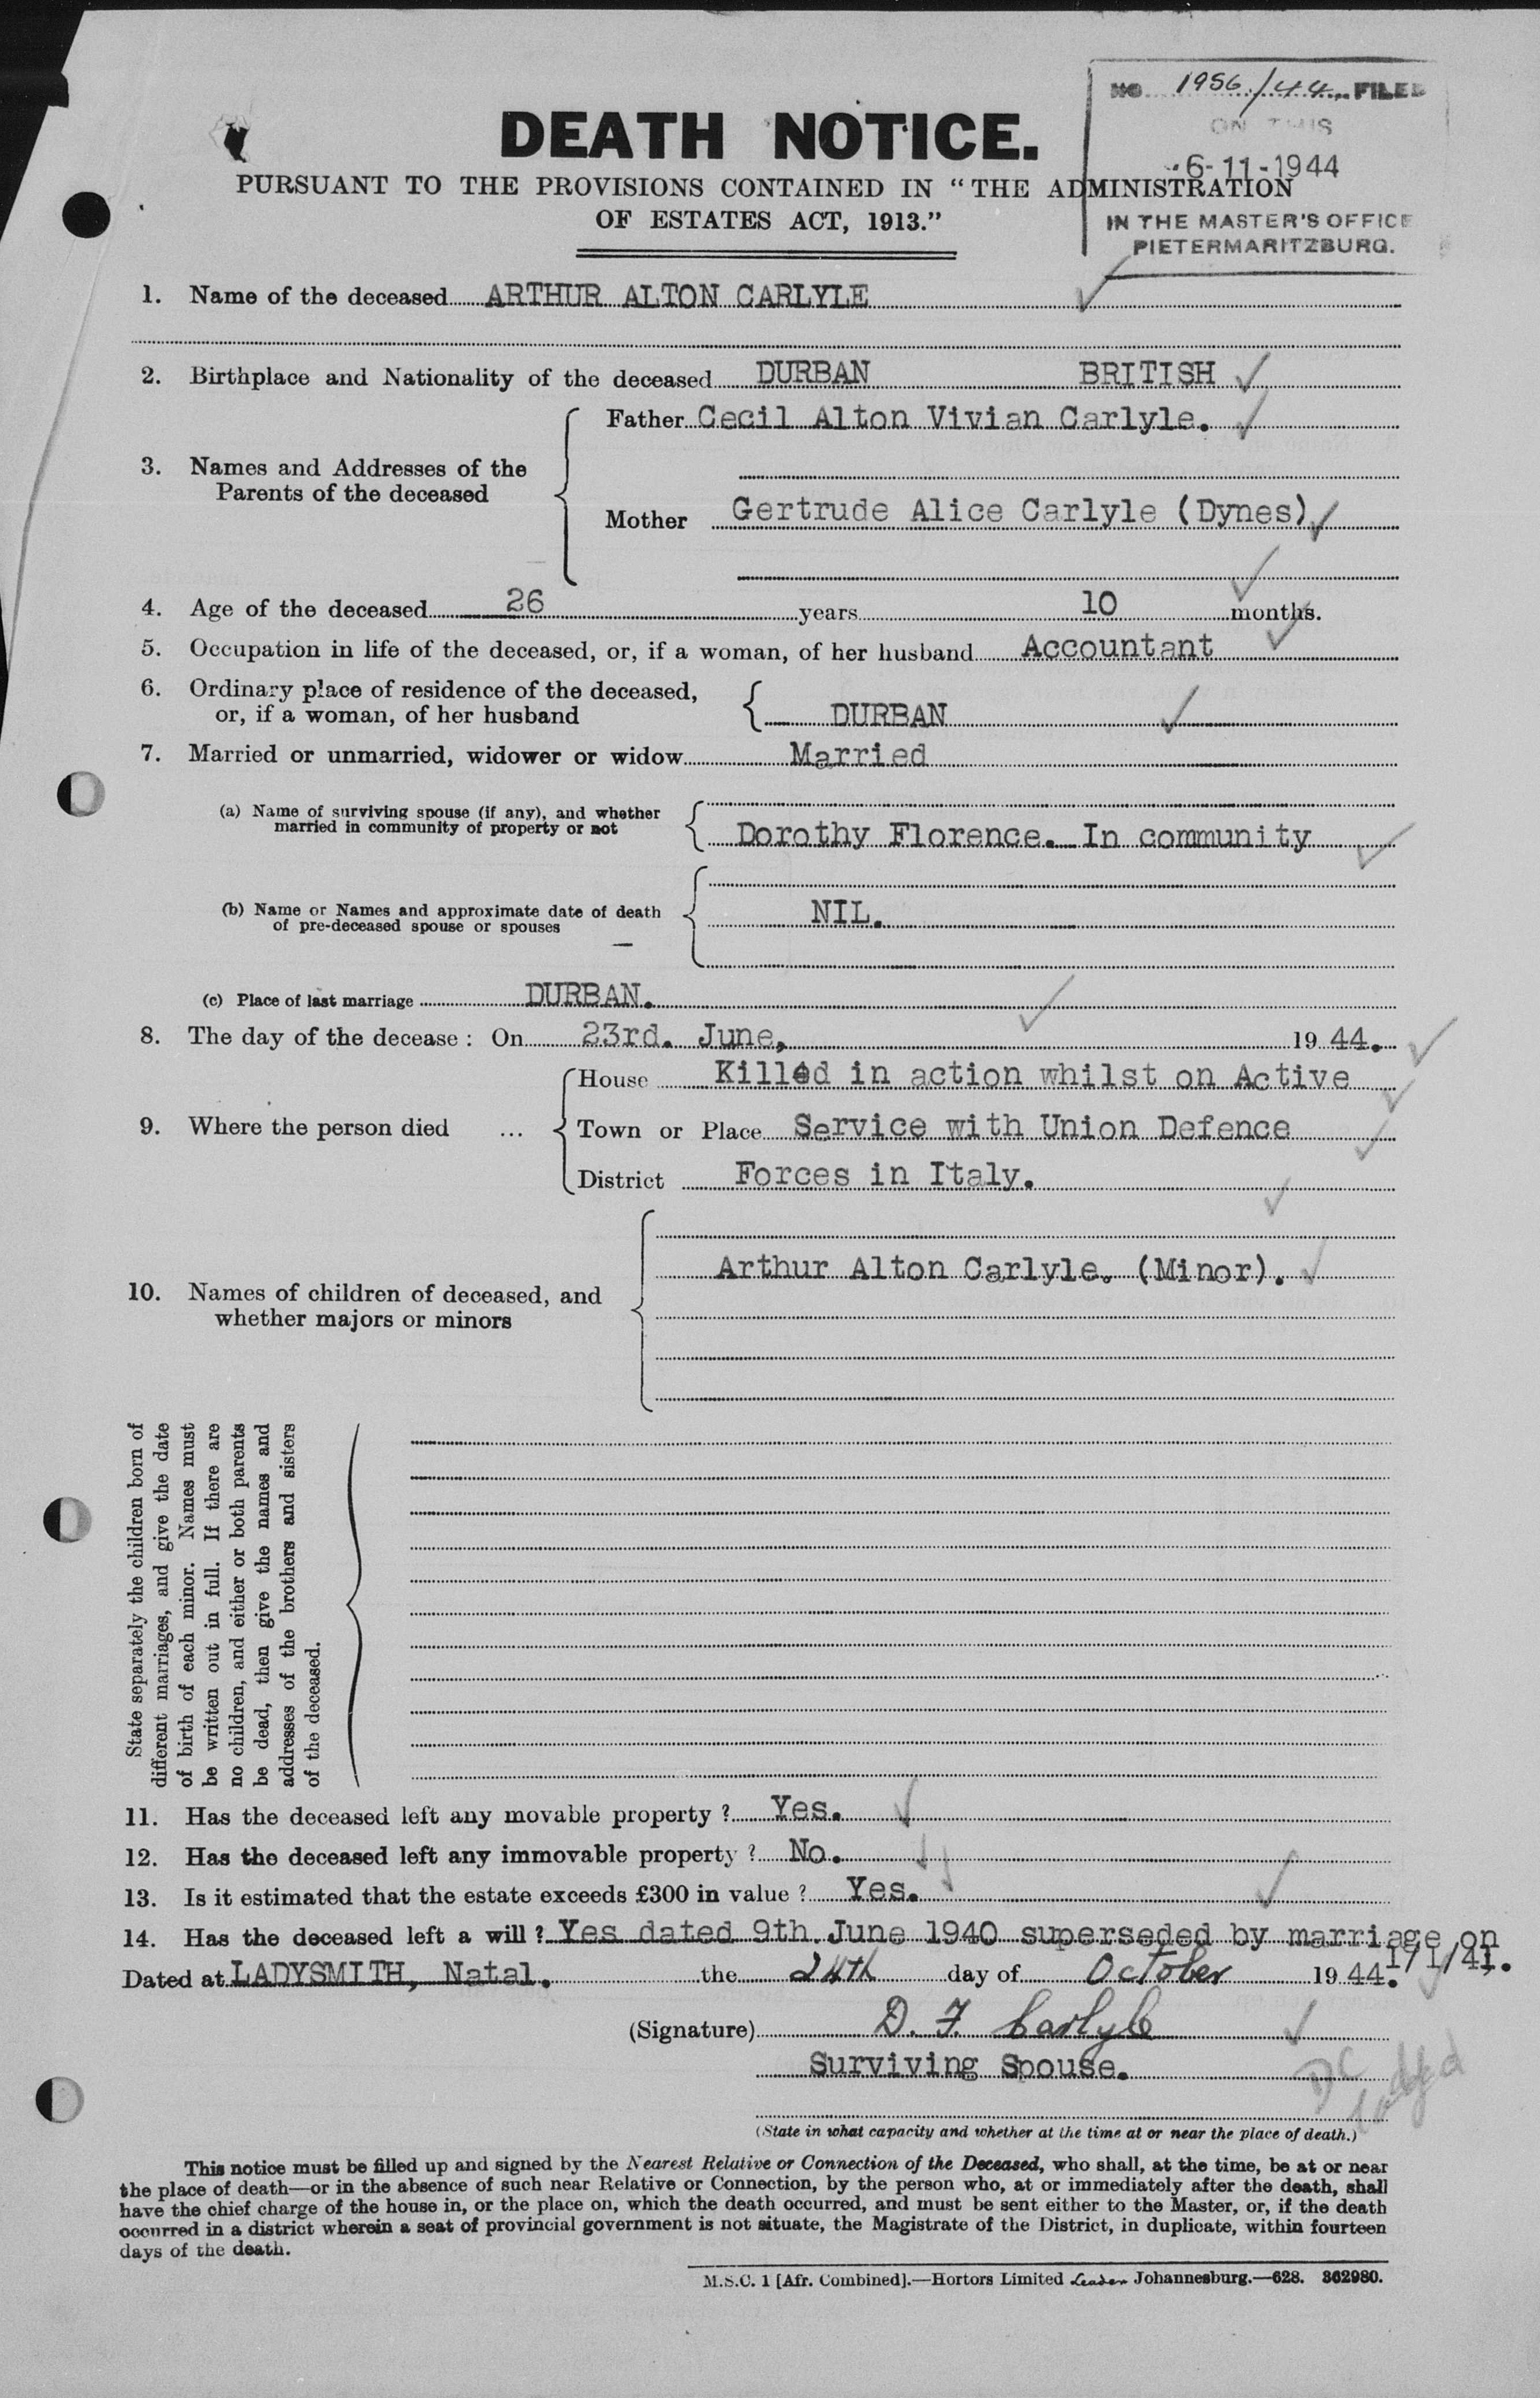 NO. 1956/44 FILED
ON THIS
-6-11-1944
IN THE MASTER'S OFFICE
PIETERMARITZBURG.
DEATH NOTICE.
PURSUANT TO THE PROVISIONS CONTAINED IN "THE ADMINISTRATION
OF ESTATES ACT, 1913."
1. Name of the deceased ARTHUR ALTON CARLYLE
2. Birthplace and Nationality of the deceased DURBAN BRITISH
3. Names and Addresses of the
Parents of the deceased
Father Cecil Alton Vivian Carlyle.
Mother Gertrude Alice Carlyle (Dynes)
4. Age of the deceased 26 years 10 months.
5. Occupation in life of the deceased, or, if a woman, of her husband Accountant
6. Ordinary place of residence of the deceased,
or, if a woman, of her husband DURBAN
7. Married or unmarried, widower or widow Married
(a) Name of surviving spouse (if any), and whether
married in community of property or not Dorothy Florence. In community
(b) Name or Names and approximate date of death
of pre-deceased spouse or spouses NIL.
(c) Place of last marriage DURBAN.
8. The day of the decease : On 23rd. June, 1944.
9. Where the person died ...
House Killed in action whilst on Active
Town or Place Service with Union Defence
District Forces in Italy.
10. Names of children of deceased, and
whether majors or minors
Arthur Alton Carlyle. (Minor).
State separately the children born of
different marriages, and give the date
of birth of each minor. Names must
be written out in full. If there are
no children, and either or both parents
be dead, then give the names and
addresses of the brothers and sisters
of the deceased.
11. Has the deceased left any movable property ? Yes.
12. Has the deceased left any immovable property ? No.
13. Is it estimated that the estate exceeds £300 in value ? Yes.
14. Has the deceased left a will ? Yes dated 9th. June 1940 superseded by marriage on
1/1/41.
Dated at LADYSMITH, Natal. the 24th day of October 1944.
(Signature) D. F. Carlyle
Surviving Spouse.
(State in what capacity and whether at the time at or near the place of death.)
This notice must be filled up and signed by the Nearest Relative or Connection of the Deceased, who shall, at the time, be at or near
the place of death—or in the absence of such near Relative or Connection, by the person who, at or immediately after the death, shall
have the chief charge of the house in, or the place on, which the death occurred, and must be sent either to the Master, or, if the death
occurred in a district wherein a seat of provincial government is not situate, the Magistrate of the District, in duplicate, within fourteen
days of the death.
M.S.C. 1 [Afr. Combined].—Hortors Limited Leader Johannesburg.—628. 362980.